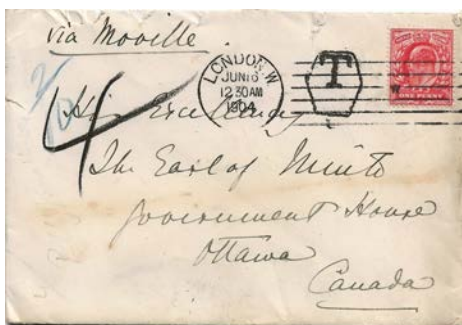 via Moville
LONDON.W
JUN 16
12 30 AM
1904
T
ONE PENNY
4
His Excellency
The Earl of Minto
Government House
Ottawa
Canada